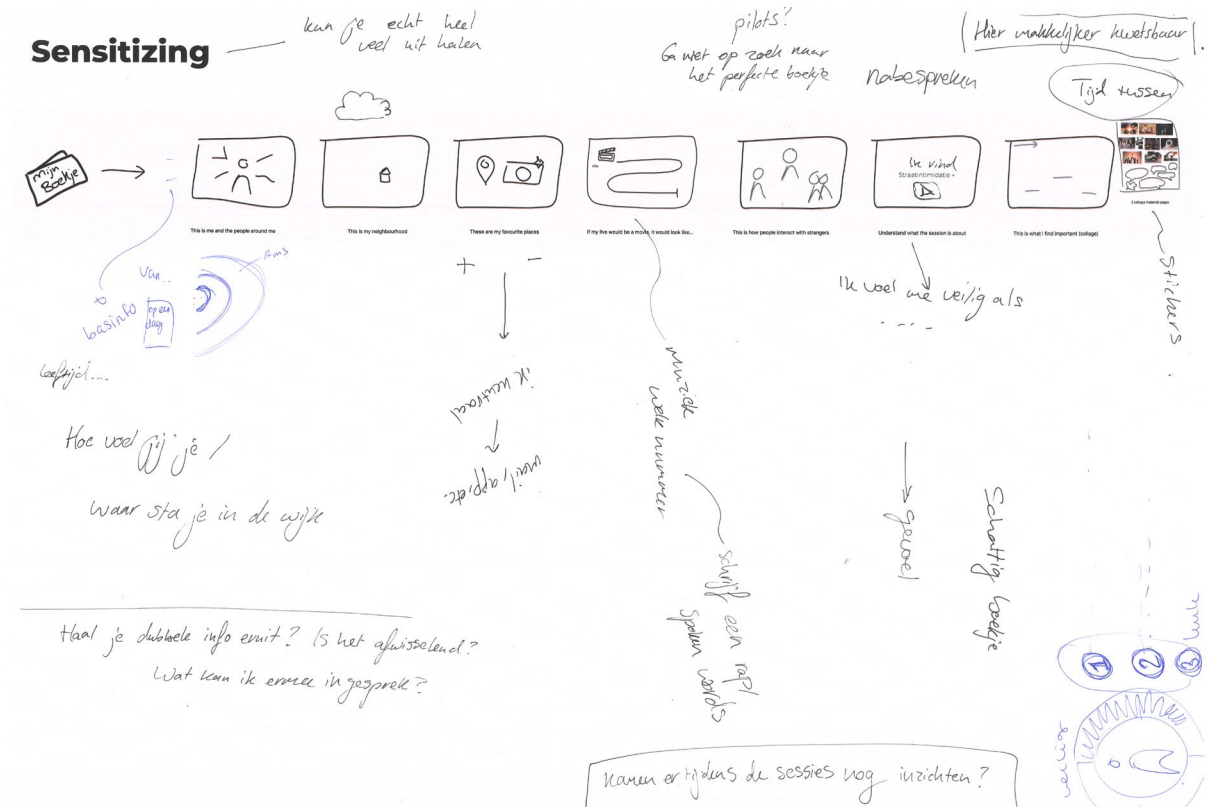 Sensitizing
kun je echt heel
veel uit halen
pilots?
Ga niet op zoek naar
het perfecte boekje
nabespreken
Hier makkelijker kwetsbaar
Tijd tussen
Mijn
Boekje
Ik vind
Straatintimidatie =
This is me and the people around me
This is my neighbourhood
These are my favourite places
If my live would be a movie, it would look like...
This is how people interact with strangers
Understand what the session is about
This is what I find important (collage)
2 collage material pages
+ -
Van...
Ams
basinfo
op een
dag
leeftijd...
Hoe voel jij je /
waar sta je in de wijk
ik neutraal
mail, app, etc.
muziek
welk nummer
schrijf een rap/
spoken words
Ik voel me veilig als
....
gevoel
Schattig boekje
stickers
Haal je dubbele info eruit? Is het afwisselend?
Wat kan ik ermee in gesprek?
Komen er tijdens de sessies nog inzichten?
1 2 3 leuk
veilig